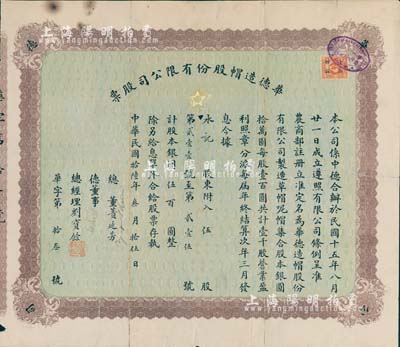 華德造帽股份有限公司股票
本公司係中德合辦於民國十五年八月
廿一日成立遵照有限公司條例呈准
農商部註冊立准定名為華德造帽股份
有限公司製造草帽呢帽集合股本銀圓
拾萬圓每股壹百圓共計壹千股營業盈
利照章分派每屆年終結算次年三月發
息合據
永記 股東附入 伍 股
第 號至第 號
計股本銀圓伍百 圓整
除另給息摺外合給股票存執
中華民國拾陸年叁月拾伍日
總董
德董事
總經理劉寶餘
華字第 拾叁 號
上海陽明拍賣